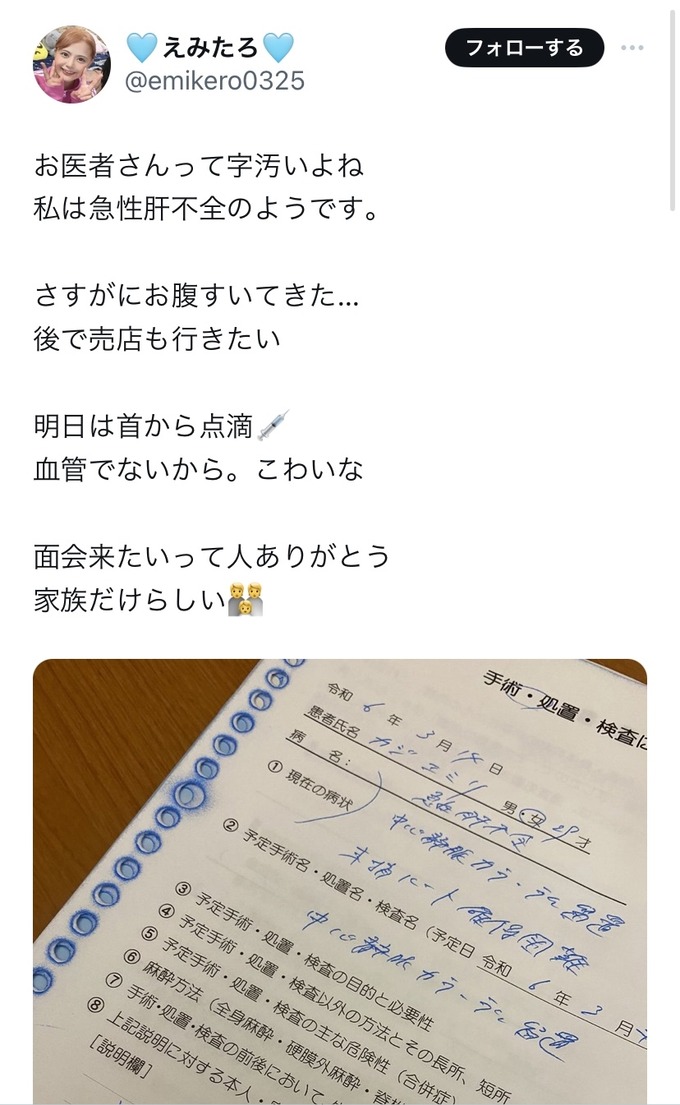 🩵えみたろ🩵
フォローする
@emikero0325
お医者さんって字汚いよね
私は急性肝不全のようです。
さすがにお腹すいてきた…
後で売店も行きたい
明日は首から点滴💉
血管でないから。こわいな
面会来たいって人ありがとう
家族だけらしい👨‍👩‍👦
手術・処置・検査に
令和 6 年 3 月 18 日
患者氏名 カジ エミリ 男・女 29 才
病 名: 急性肝不全
① 現在の病状
中心静脈カテーテル留置
末梢ルート確保困難
② 予定手術名・処置名・検査名 (予定日 令和 6 年 3 月
中心静脈カテーテル留置
③ 予定手術・処置・検査の目的と必要性
④ 予定手術・処置・検査以外の方法とその長所、短所
⑤ 予定手術・処置・検査の主な危険性 (合併症)
⑥ 麻酔方法 (全身麻酔・硬膜外麻酔・脊
⑦ 手術・処置・検査の前後において
⑧ 上記説明に対する本人・
[説明欄]